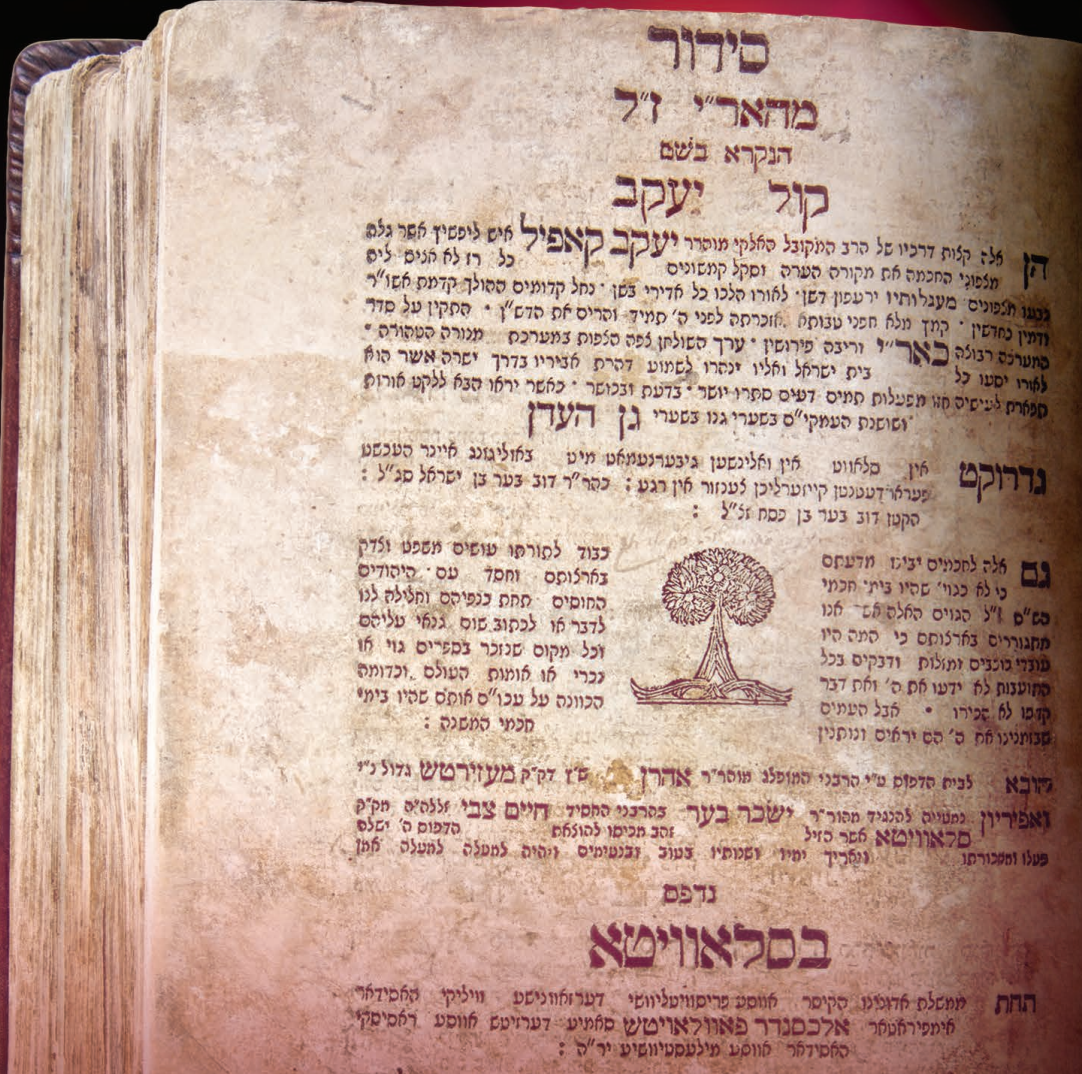 סידור
מהאר״י ז״ל
הנקרא בשם
קול יעקב
הן אלה קצות דרכיו של הרב המקובל האלקי מוהרר יעקב קאפיל איש ליפשיץ אשר גלה
מצפוני החכמה את מקורה הערה וסקל קמשונים כל רז לא אניס ליה
נבעו מצפונים מעגלותיו ירעפון דשן׃ לאורו הלכו כל אדירי בשן ׃ נחל קדומים ההולך קדמת אשו״ר
ודמין כחדשין ׃ קמך מלא חפני טבותא אזכרתה לפני ה׳ תמיד והרים את הדש״ן ׃ התקין על סדר
המערכה רבולה כאר״י וריבה פירושין ׃ ערך השולחן לפה הלפות במערכת מנורה הטהורה ׃
לאורו יסעו כל בית ישראל ואליו ינהרו לשמוע דהרת אביריו בדרך ישרה אשר הוא
תפארת לעישיה מפעלות תמים דעים סתרו יושר ׃ בדעת ובכושר ׃ כאשר יראו הבא ללקט אורות
ושושנת העמקי״ם בשערי גנו בשערי גן העדן
גדרוקט אין סלאוויט אין וואלינשען גיבערנעמאט מיט באוויליגונג איינר העכשט
פערארדענטען קייזערליכן לענזור אין רגע ׃ כהר״ר דוב בער בן ישראל סג״ל ׃
הקטן דוב בער בן פסח זל״ל ׃
גם אלה לחכמים יבינו מדעתם
כי לא כגוי׳ שהיו בימי חכמי
הש״ס ז״ל הגוים האלה אשר אנו
מתגוררים בארצותם כי המה היו
עובדי כוכבים ומזלות ודבקים בכל
התועבות לא ידעו את ה׳ ואת דבר
קדשו לא הכירו ׃ אבל העמים
שבזמנינו את ה׳ הם יראים ונותנין
כבוד לתורתו עושים משפט וצדק
בארצותם וחסד עם היהודים
החוסים תחת כנפיהם וחלילה לנו
לדבר או לכתוב שום גנאי עליהם
וכל מקום שנזכר בספרים גוי או
נכרי או אומות העולם וכדומה
הכוונה על עכו״ם אותם שהיו בימי
חכמי המשנה ׃
הובא לבית הדפוס ע״י הרבני המופלג מוהר״ר אהרן ש״ץ דק״ק מעזירטש גדול נ״י
ואפיריון נמטייה להנגיד מהור״ר ישכר בער בהרבני החסיד חיים צבי זללה״ה מק״ק
סלאוויטא אשר הזיל זהב מכיסו להוצאת הדפוס ה׳ ישלם
פעלו ומשכורתו ויאריך ימיו ושנותיו בטוב ובנעימים ויהיה למעלה למעלה אמן
נדפס
בסלאוויטא
תחת ממשלת אדונינו הקיסר אווסע פריסוויטליוושי דערזאוונישע וויליקי האסידאר
אימפיראטאר אלכסנדר פאוולאוויטש סאמיע דערזיטש אווסע ראסיסקי
האסידאר אווסע מילעסטיוושיע יר״ה ׃